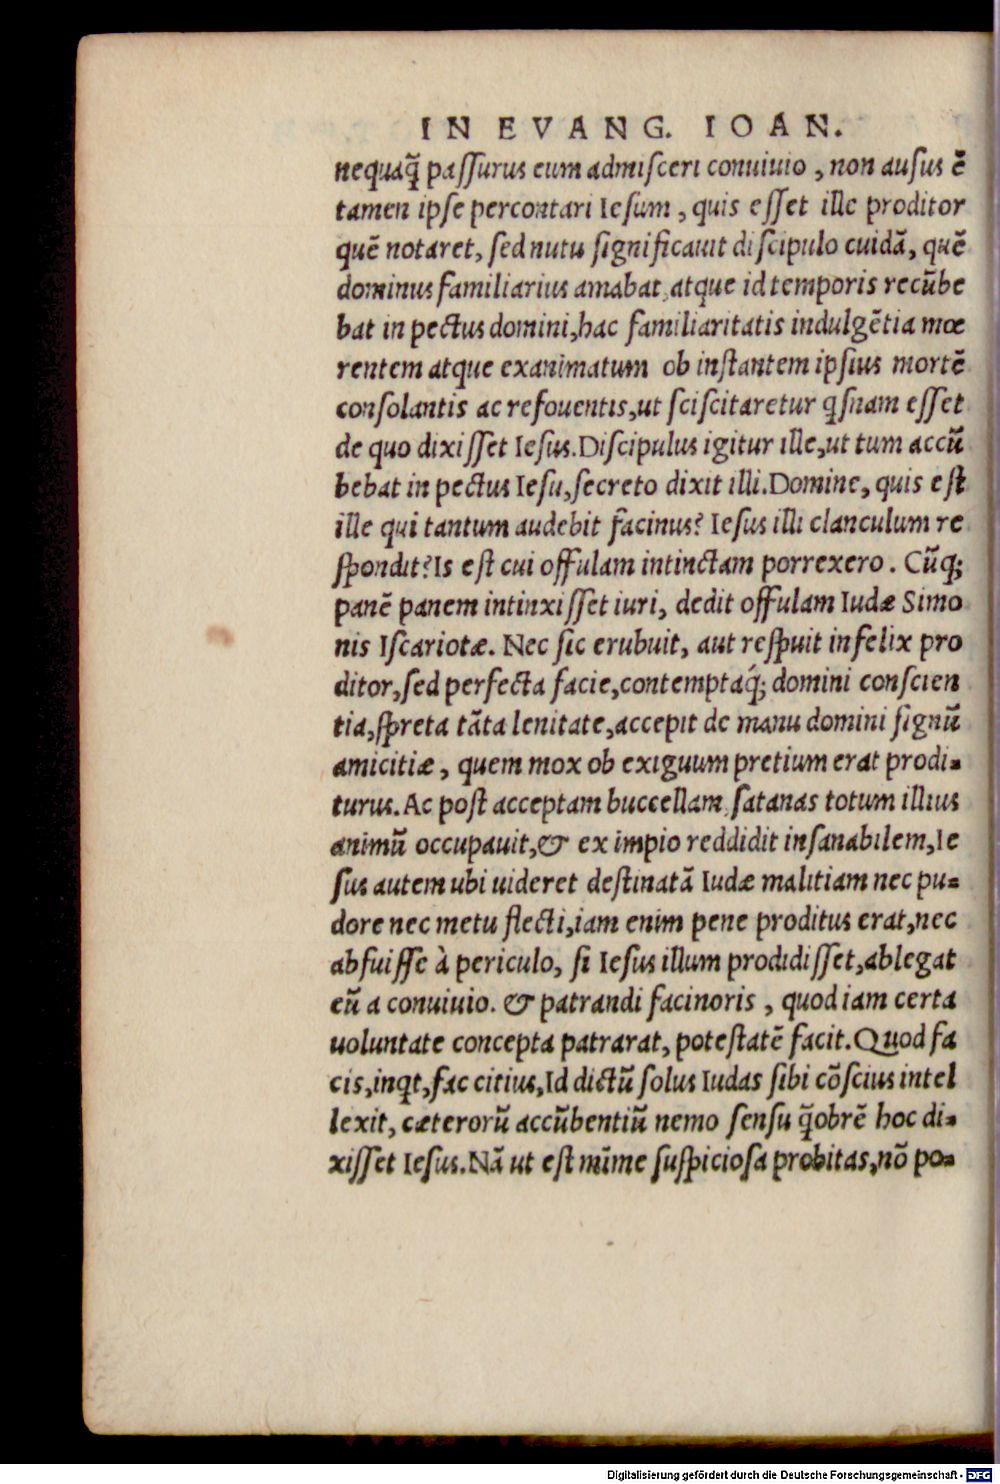 IN EVANG. IOAN.
nequaq̃ paſſurus eum admiſceri conuiuio , non auſus ẽ
tamen ipſe percontari Ieſum , quis eſſet ille proditor
quẽ notaret, ſed nutu ſignificauit diſcipulo cuidã, quẽ
dominus familiarius amabat, atque id temporis recũbe
bat in pectus domini, hac familiaritatis indulgẽtia mœ
rentem atque exanimatum ob inſtantem ipſius mortẽ
conſolantis ac refouentis, ut ſciſcitaretur qſnam eſſet
de quo dixiſſet Ieſus. Diſcipulus igitur ille, ut tum accũ
bebat in pectus Ieſu, ſecreto dixit illi. Domine, quis eſt
ille qui tantum audebit facinus? Ieſus illi clanculum re
ſpondit? Is eſt cui offulam intinctam porrexero . Cũq;
panẽ panem intinxiſſet iuri, dedit offulam Iudæ Simo
nis Iſcariotæ. Nec ſic erubuit, aut reſpuit infelix pro
ditor, ſed perfecta facie, contemptaq́; domini conſcien
tia, ſpreta tãta lenitate, accepit de manu domini ſignũ
amicitiæ , quem mox ob exiguum pretium erat prodi-
turus. Ac poſt acceptam buccellam, ſatanas totum illius
animũ occupauit, & ex impio reddidit inſanabilem, Ie
ſus autem ubi uideret deſtinatã Iudæ malitiam nec pu-
dore nec metu flecti, iam enim pene proditus erat, nec
abfuiſſe à periculo, ſi Ieſus illum prodidiſſet, ablegat
eũ a conuiuio. & patrandi facinoris , quod iam certa
uoluntate concepta patrarat, poteſtatẽ facit. Quod fa
cis, inqt, fac citius, Id dictũ ſolus Iudas ſibi cõſcius intel
lexit, cæterorũ accũbentiũ nemo ſenſu q̃obrẽ hoc di-
xiſſet Ieſus. Nã ut eſt mĩme ſuſpicioſa probitas, nõ po-
Digitalisierung gefördert durch die Deutsche Forschungsgemeinschaft - DFG